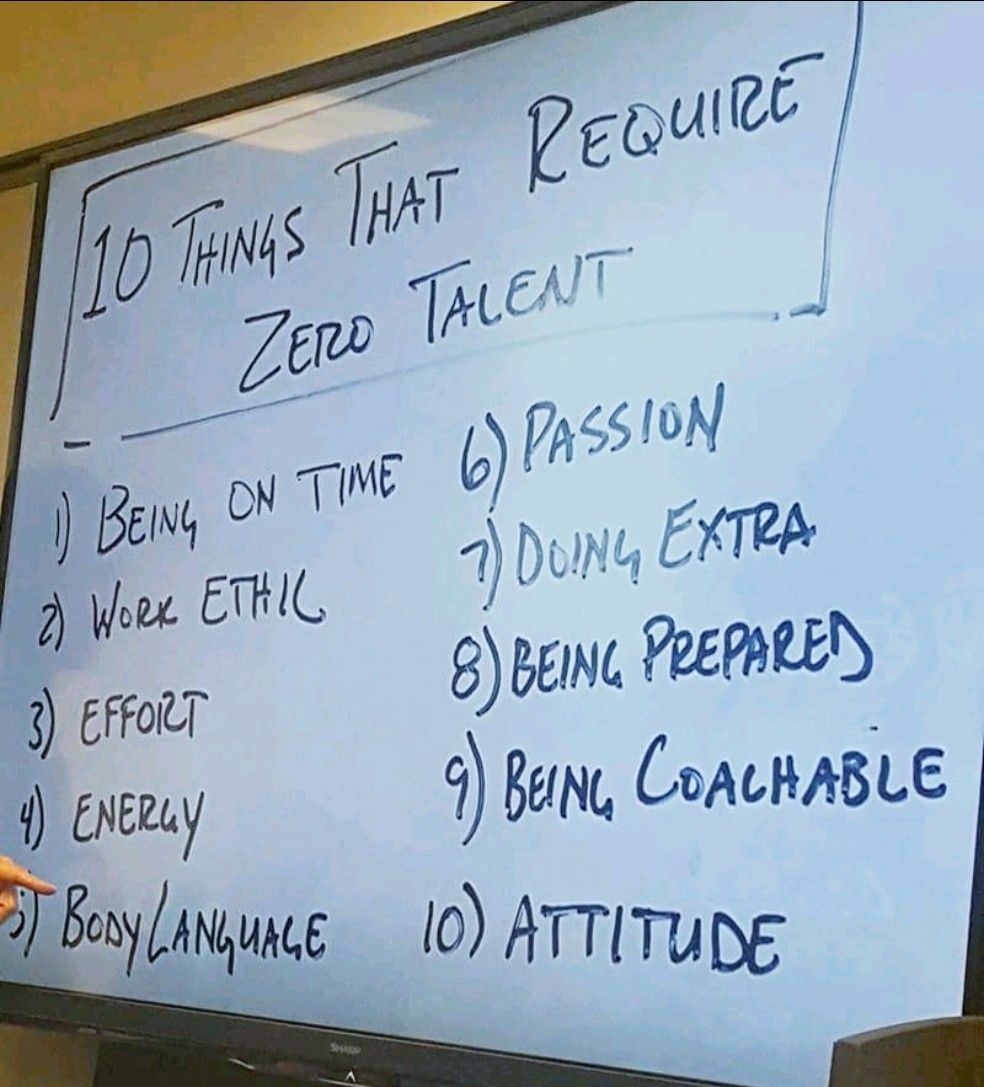 10 THINGS THAT REQUIRE
ZERO TALENT
1) BEING ON TIME
2) WORK ETHIC
3) EFFORT
4) ENERGY
5) BODY LANGUAGE
6) PASSION
7) DOING EXTRA
8) BEING PREPARED
9) BEING COACHABLE
10) ATTITUDE
SHARP